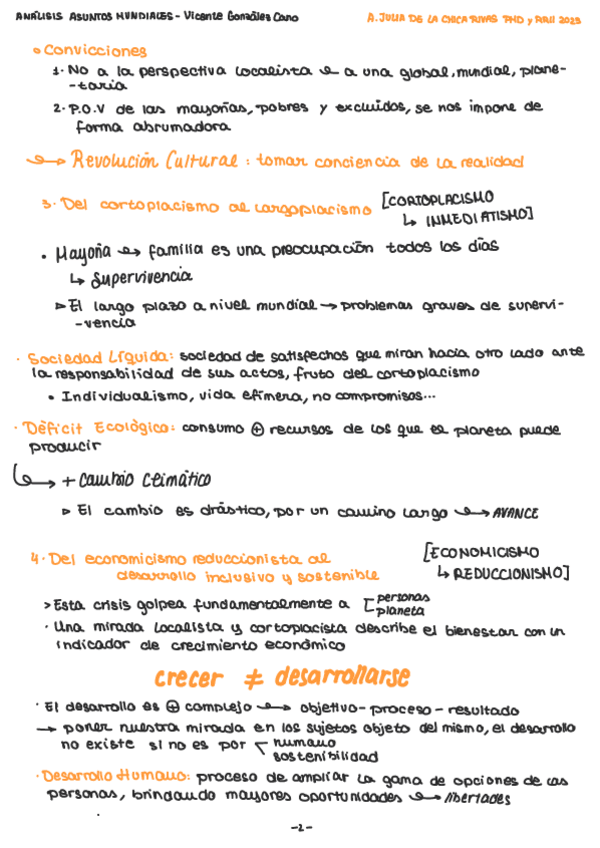 ANÁLISIS ASUNTOS MUNDIALES - Vicente González Cano
A. JULIA DE LA CHICA RIVAS PHD y RRII 2023
• Convicciones
1. No a la perspectiva localista → a una global, mundial, plane-
-taria
2. P.O.V de las mayorías, pobres y excluidos, se nos impone de
forma abrumadora
→ Revolución Cultural : tomar conciencia de la realidad
3. Del cortoplacismo al largoplacismo [CORTOPLACISMO
↳ INMEDIATISMO]
• Mayoría → familia es una preocupación todos los días
↳ Supervivencia
▷ El largo plazo a nivel mundial → problemas graves de supervi-
-vencia
· Sociedad Líquida: sociedad de satisfechos que miran hacia otro lado ante
la responsabilidad de sus actos, fruto del cortoplacismo
• Individualismo, vida efímera, no compromisos...
· Déficit Ecológico: consumo ⊕ recursos de los que el planeta puede
producir
↳ + Cambio Climático
▷ El cambio es drástico, por un camino largo → AVANCE
4. Del economicismo reduccionista al
desarrollo inclusivo y sostenible
[ECONOMICISMO
↳ REDUCCIONISMO]
> Esta crisis golpea fundamentalmente a [personas
planeta
· Una mirada localista y cortoplacista describe el bienestar con un
indicador de crecimiento económico
crecer ≠ desarrollarse
· El desarrollo es ⊕ complejo → objetivo - proceso - resultado
→ poner nuestra mirada en los sujetos objeto del mismo, el desarrollo
no existe si no es por < humano
sostenibilidad
· Desarrollo Humano: proceso de ampliar la gama de opciones de las
personas, brindando mayores oportunidades → libertades
-2-